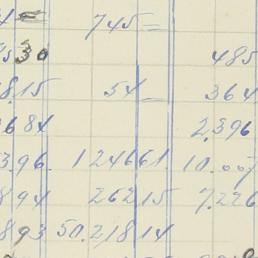 745 =
30 485
8.15 54 — 364
684 2,396
396. 124661. 10.007
894 26215 7.226
893 50.21814